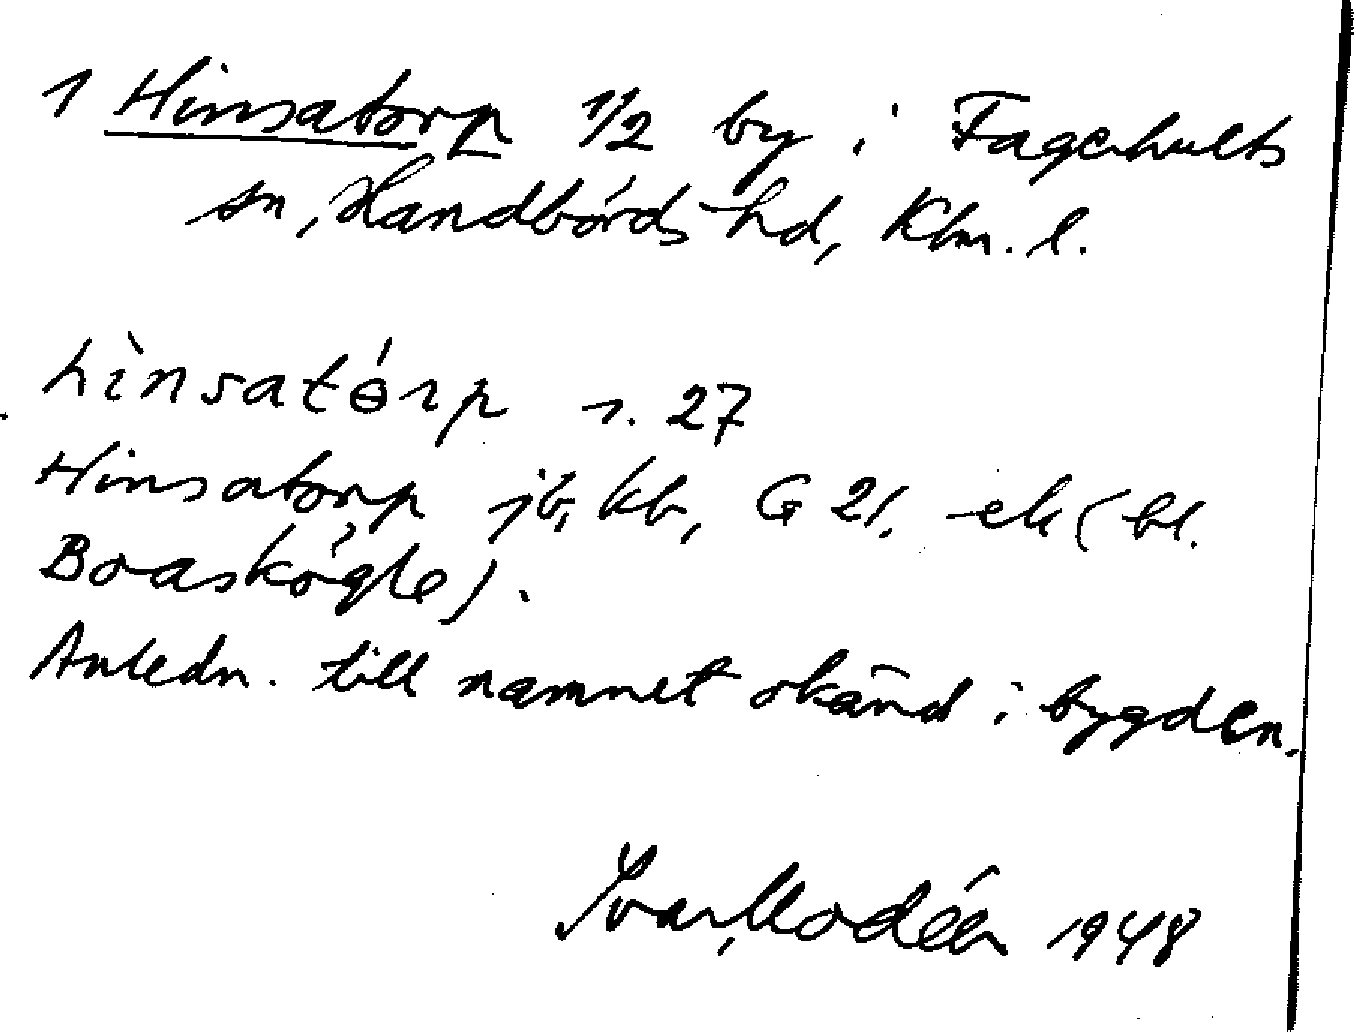 1 Hinsatorp 1/2 by i Fagerhults
sn, Handbörds hd, Klm. l.
hìnsatɵ́rp r. 27
Hinsatorp jb, kb, G 21. ek (bl.
Boaskögle).
Anledn. till namnet okänd i bygden.
Ivar Modéer 1948